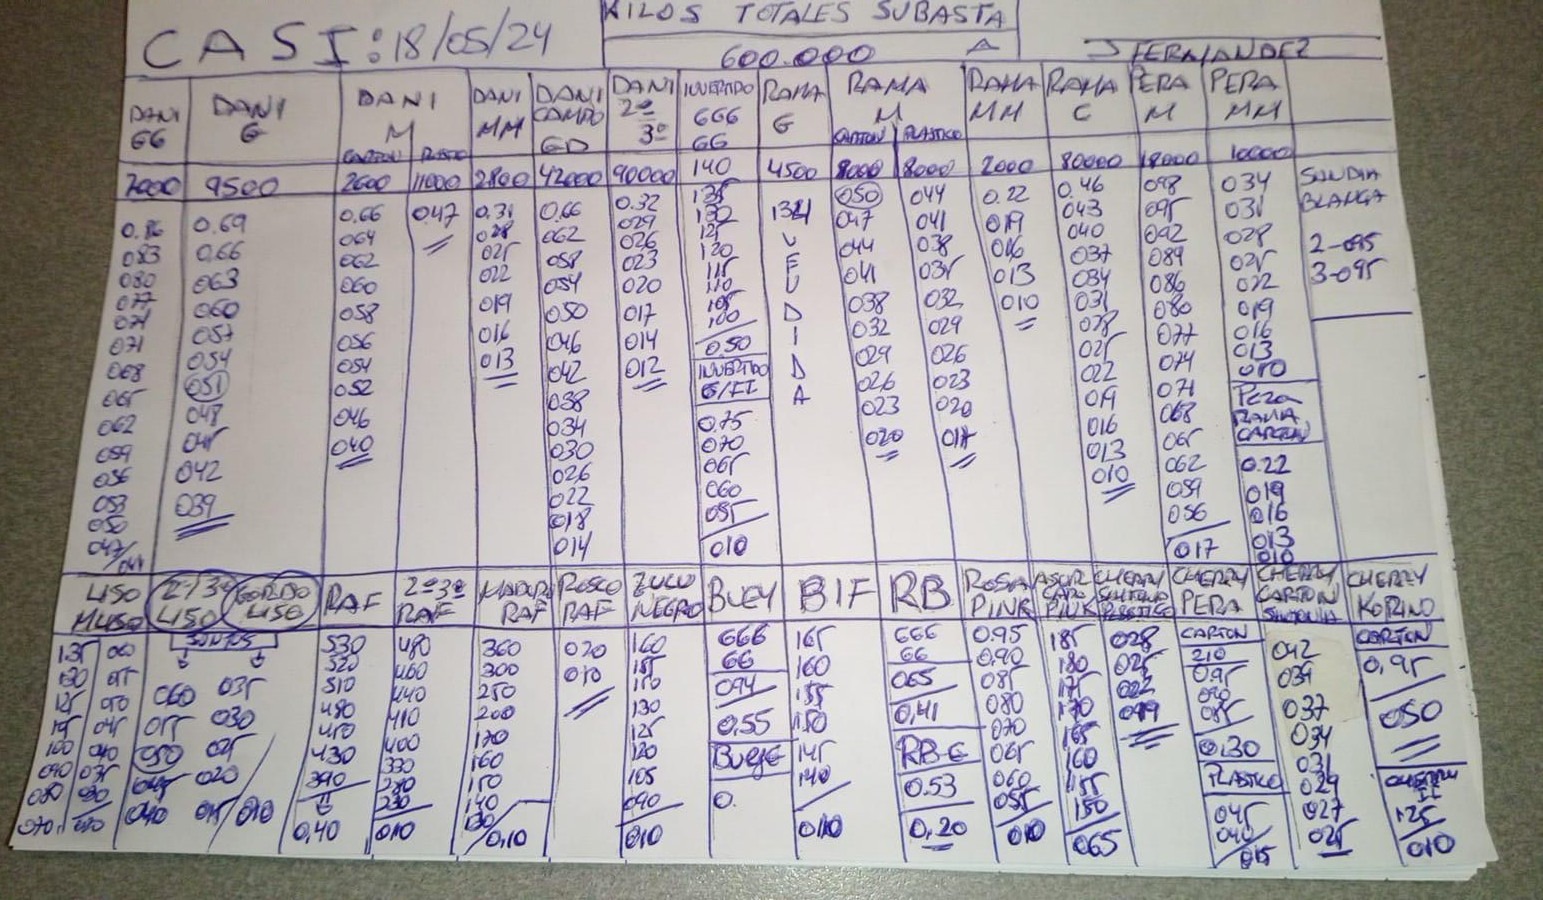 KILOS TOTALES SUBASTA
CASI: 18/05/24
600.000 A
J FERNANDEZ
DANI GG
DANI G
DANI M
CARTON
DANI MM
DANI CAMPO GD
DANI 2ª 3ª
INVERTIDO 666 GG
RAMA G
RAMA M
CARTON PLASTICO
RAMA MM
RAMA C
PERA M
PERA MM
9500 2600 11000 2800 42000 90000 140 4500 8000 8000 2000 80000 18000 10000
SANDIA BLANCA
2-095
3-095
0.86
083
080
077
074
071
068
065
062
059
056
053
050
047/044
0.69
0.66
063
060
057
054
051
048
045
042
039
0.66
064
062
060
058
056
054
052
046
040
047
0.31
028
025
022
019
016
013
0.66
062
058
054
050
046
042
038
034
030
026
022
018
014
0.32
029
026
023
020
017
014
012
135
130
125
120
115
110
105
100
0.50
INVERTIDO
0.75
070
065
060
055
010
134
VENDIDA
050
047
044
041
038
032
029
026
023
020
044
041
038
035
032
029
026
023
020
017
0.22
019
016
013
010
0.46
043
040
037
034
031
028
025
022
019
016
013
010
098
095
092
089
086
080
077
074
071
068
065
062
059
056
017
034
031
028
025
022
019
016
013
010
PERA RAMA CARTON
0.22
019
016
013
010
LISO
2ª/3ª LISO
GORDO LISO
RAF
2ª 3ª RAF
MADURO RAF
ROSCO RAF
ZULU NEGRO
BUEY
BIF
RB
ROSA PINK
ASUR CAPO PINK
CHERRY
PLASTICO
CHERRY PERA
CHERRY CARTON
CHERRY KORINO
135
130
125
115
100
090
080
070
060
055
050
045
040
035
030
060
055
050
045
040
035
030
025
020
015
010
530
520
510
480
450
430
390
0,40
480
460
440
410
400
330
280
230
010
360
300
250
200
170
160
150
140
130
0,10
020
010
160
155
150
130
125
120
105
090
010
666
66
094
0,55
0.
165
160
155
150
145
140
010
666
66
065
0,41
RB G
0.53
0,20
0.95
0.90
085
080
070
065
060
055
010
185
180
175
170
165
160
155
150
065
028
025
022
019
CARTON
210
095
090
085
0,30
PLASTICO
045
040
015
042
039
037
034
031
029
027
025
CARTON
0,95
050
CHERRY
125
010